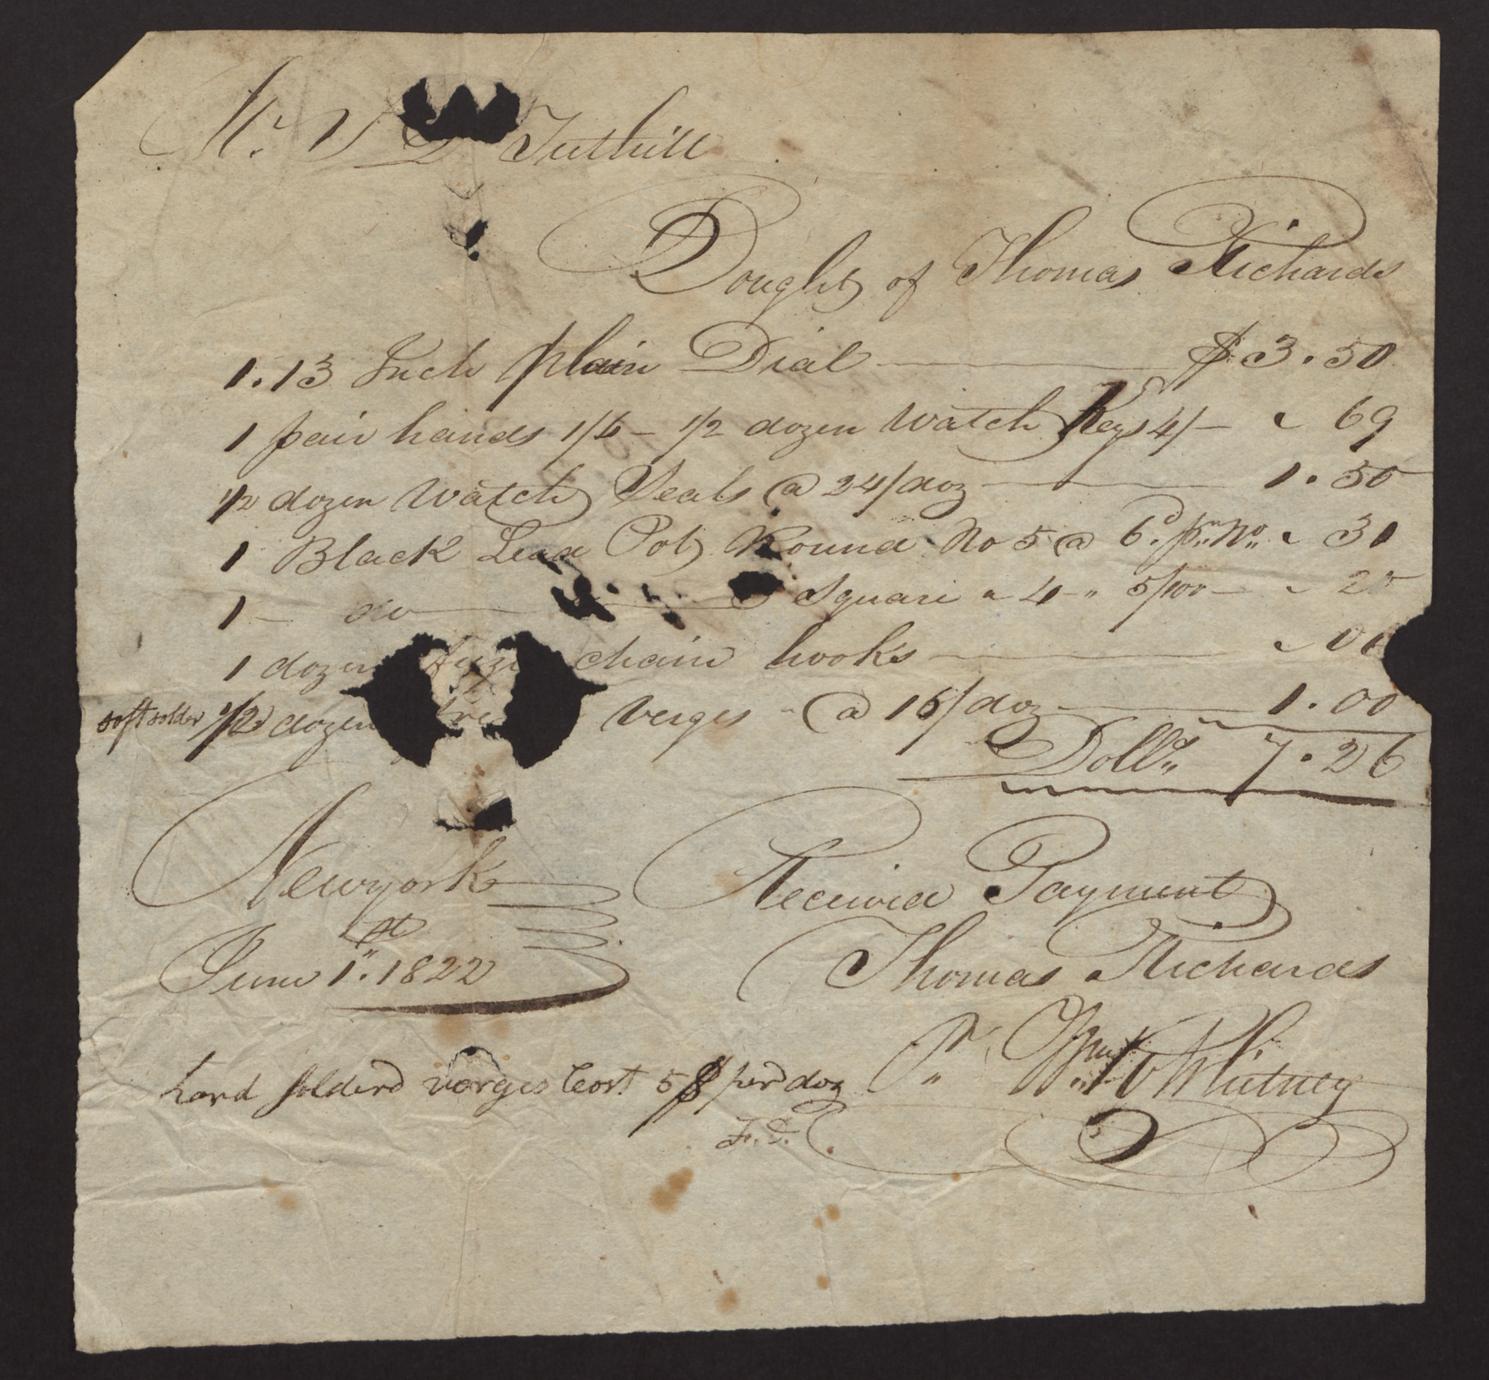 Mr. D Tuthill
Bought of Thomas Richards
1. 13 Inch plain Dial $3.50
1 pair hands 1/6 – 1/2 dozen Watch Keys 4/– " 69
1/2 dozen Watch Seals @ 24/doz 1.50
1 Black Lead Pot, Round No 5 @ 6d. pr. No. " 31
1 – do Square " 4 – " 5/100 – " 20
1 dozen chain hooks " 06
soft solder 1/2 dozen Verges – @ 16/doz 1.00
Dolls. 7.26
Newyork
June 1st. 1822
Received Payment
Thomas Richards
Pr. Wm Whitney
hard solderd verges Cost 5$ per doz